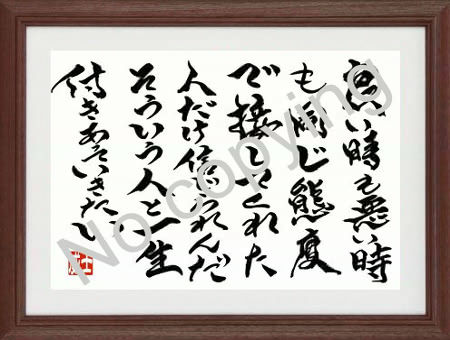 良い時も悪い時
も同じ態度
で接してくれた
人だけ信じられんだ
そういう人と一生
付きあっていきたい
No copying